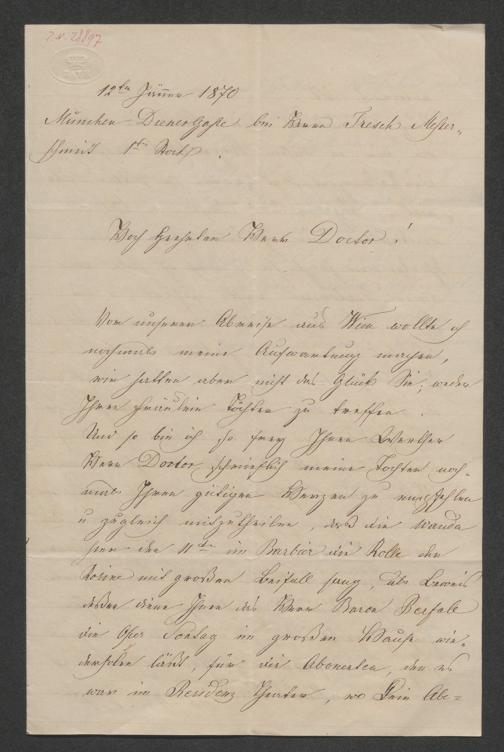 I.N. 28897
12ten Jänner 1870
München Dienersgaße bei Herrn Fresch Messer-
schmid 1ten Stock.
Hoch Geehrter Herr Doctor!
Vor unserer Abreise aus Wien wollte ich
nochmals meine Aufwartung machen,
wir hatten aber nicht das Glück Sie, weder
Ihre Fräulein Töchter zu treffen.
Und so bin ich so frey Ihnen Werther
Herr Doctor schriftlich meine Tochter noch-
mals Ihren gütigen Herzen zu empfehlen
u zugleich mitzutheilen, daß die Wanda
hier den 11ten im Barbier die Rolle der
Rosine mit großen Beifall sang, als Beweis
dessen diene Ihnen das Herr Baron Perfall
die Oper Sontag im großen Hause wie-
derholen läßt, für die Abonenten, den es
war im Residenz Theater, wo kein Abo-